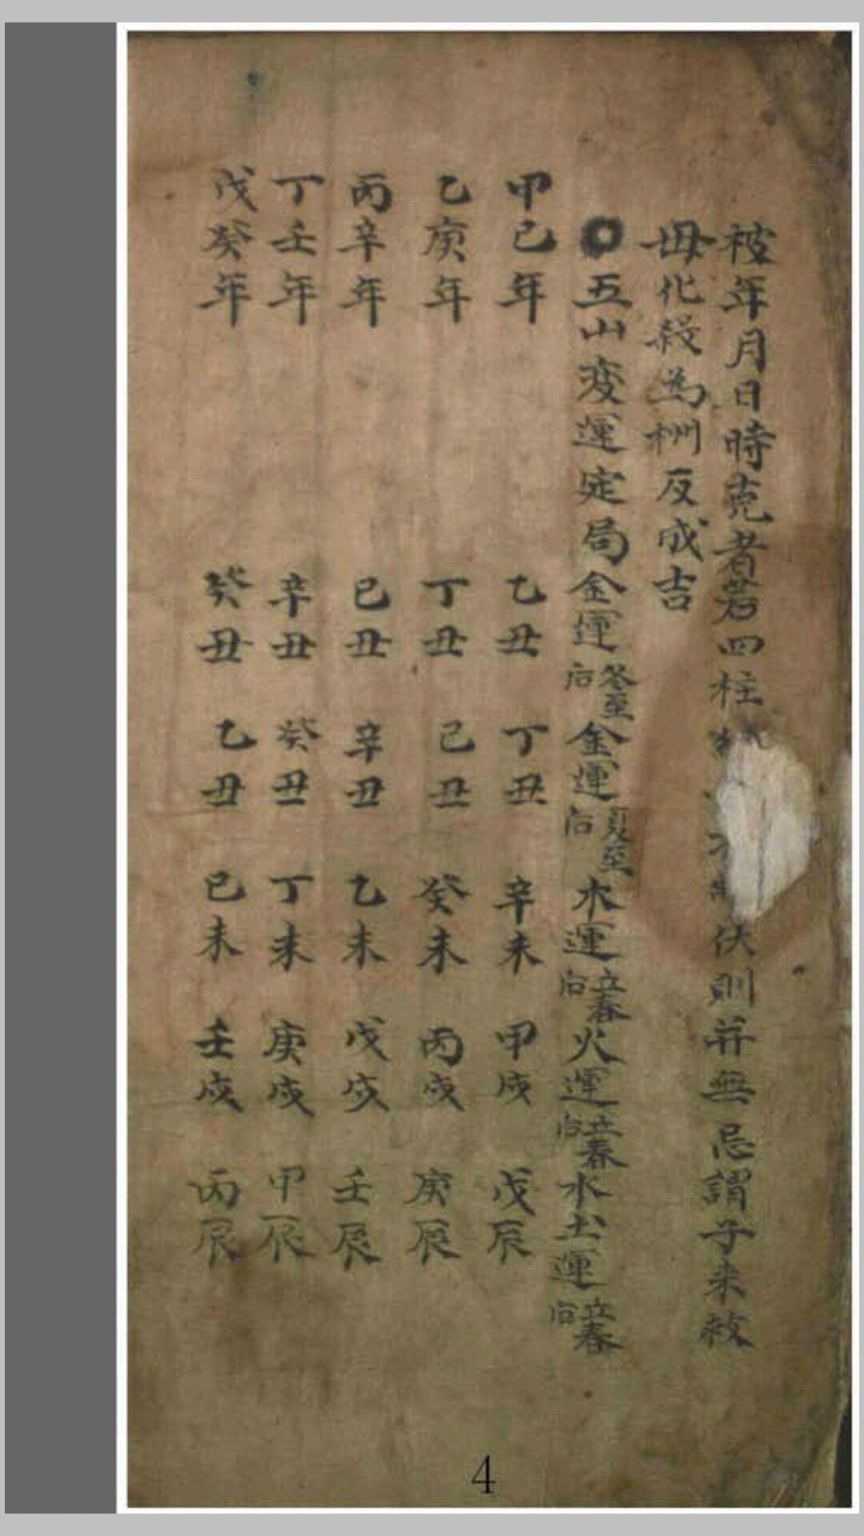 被年月日時克者若四柱伏則并無忌謂子来救
母化殺為权反成吉
五山变運定局金運冬至后金運夏至后水運立春后火運立春后水土運立春后
甲己年乙丑丁丑辛未甲戌戊辰
乙庚年丁丑己丑癸未丙戌庚辰
丙辛年己丑辛丑乙未戊戌壬辰
丁壬年辛丑癸丑丁未庚戌甲辰
戊癸年癸丑乙丑己未壬戌丙辰
4